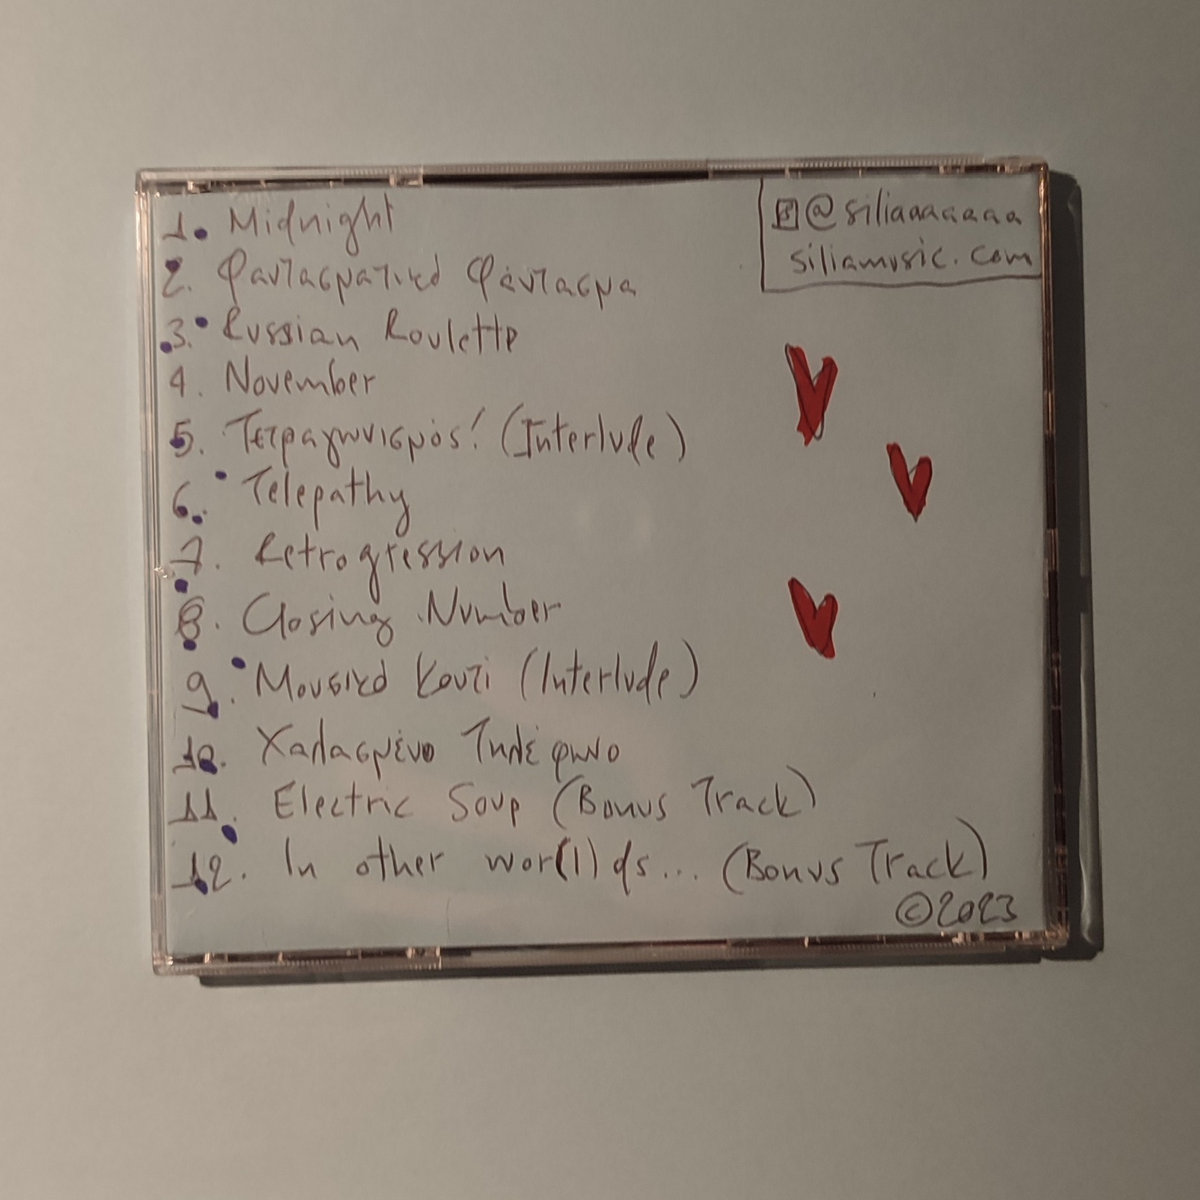 1. Midnight
2. Φαντασματικό Φάντασμα
3. Russian Roulette
4. November
5. Τετραγωνισμός! (Interlude)
6. Telepathy
7. Retrogression
8. Closing Number
9. Μουσικό Κουτί (Interlude)
10. Χαλασμένο Τηλέφωνο
11. Electric Soup (Bonus Track)
12. In other wor(l)ds... (Bonus Track)
@siliaaaaaaa
siliamusic.com
©2023